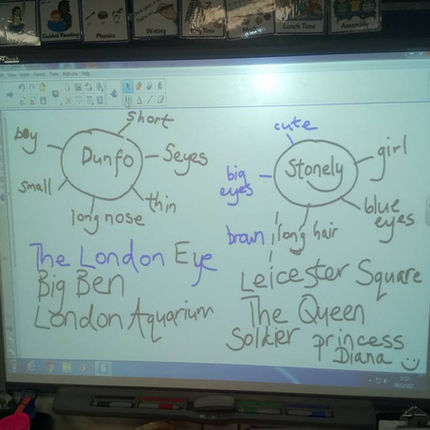 Guided Reading
Phonics
Writing
Lunch Time
Assembly
short
boy
Dunfo
5eyes
small
long nose
thin
cute
big
eyes
Stonely
girl
blue
eyes
brown
long hair
The London Eye
Big Ben
London Aquarium
Leicester Square
The Queen
Soldier princess
Diana